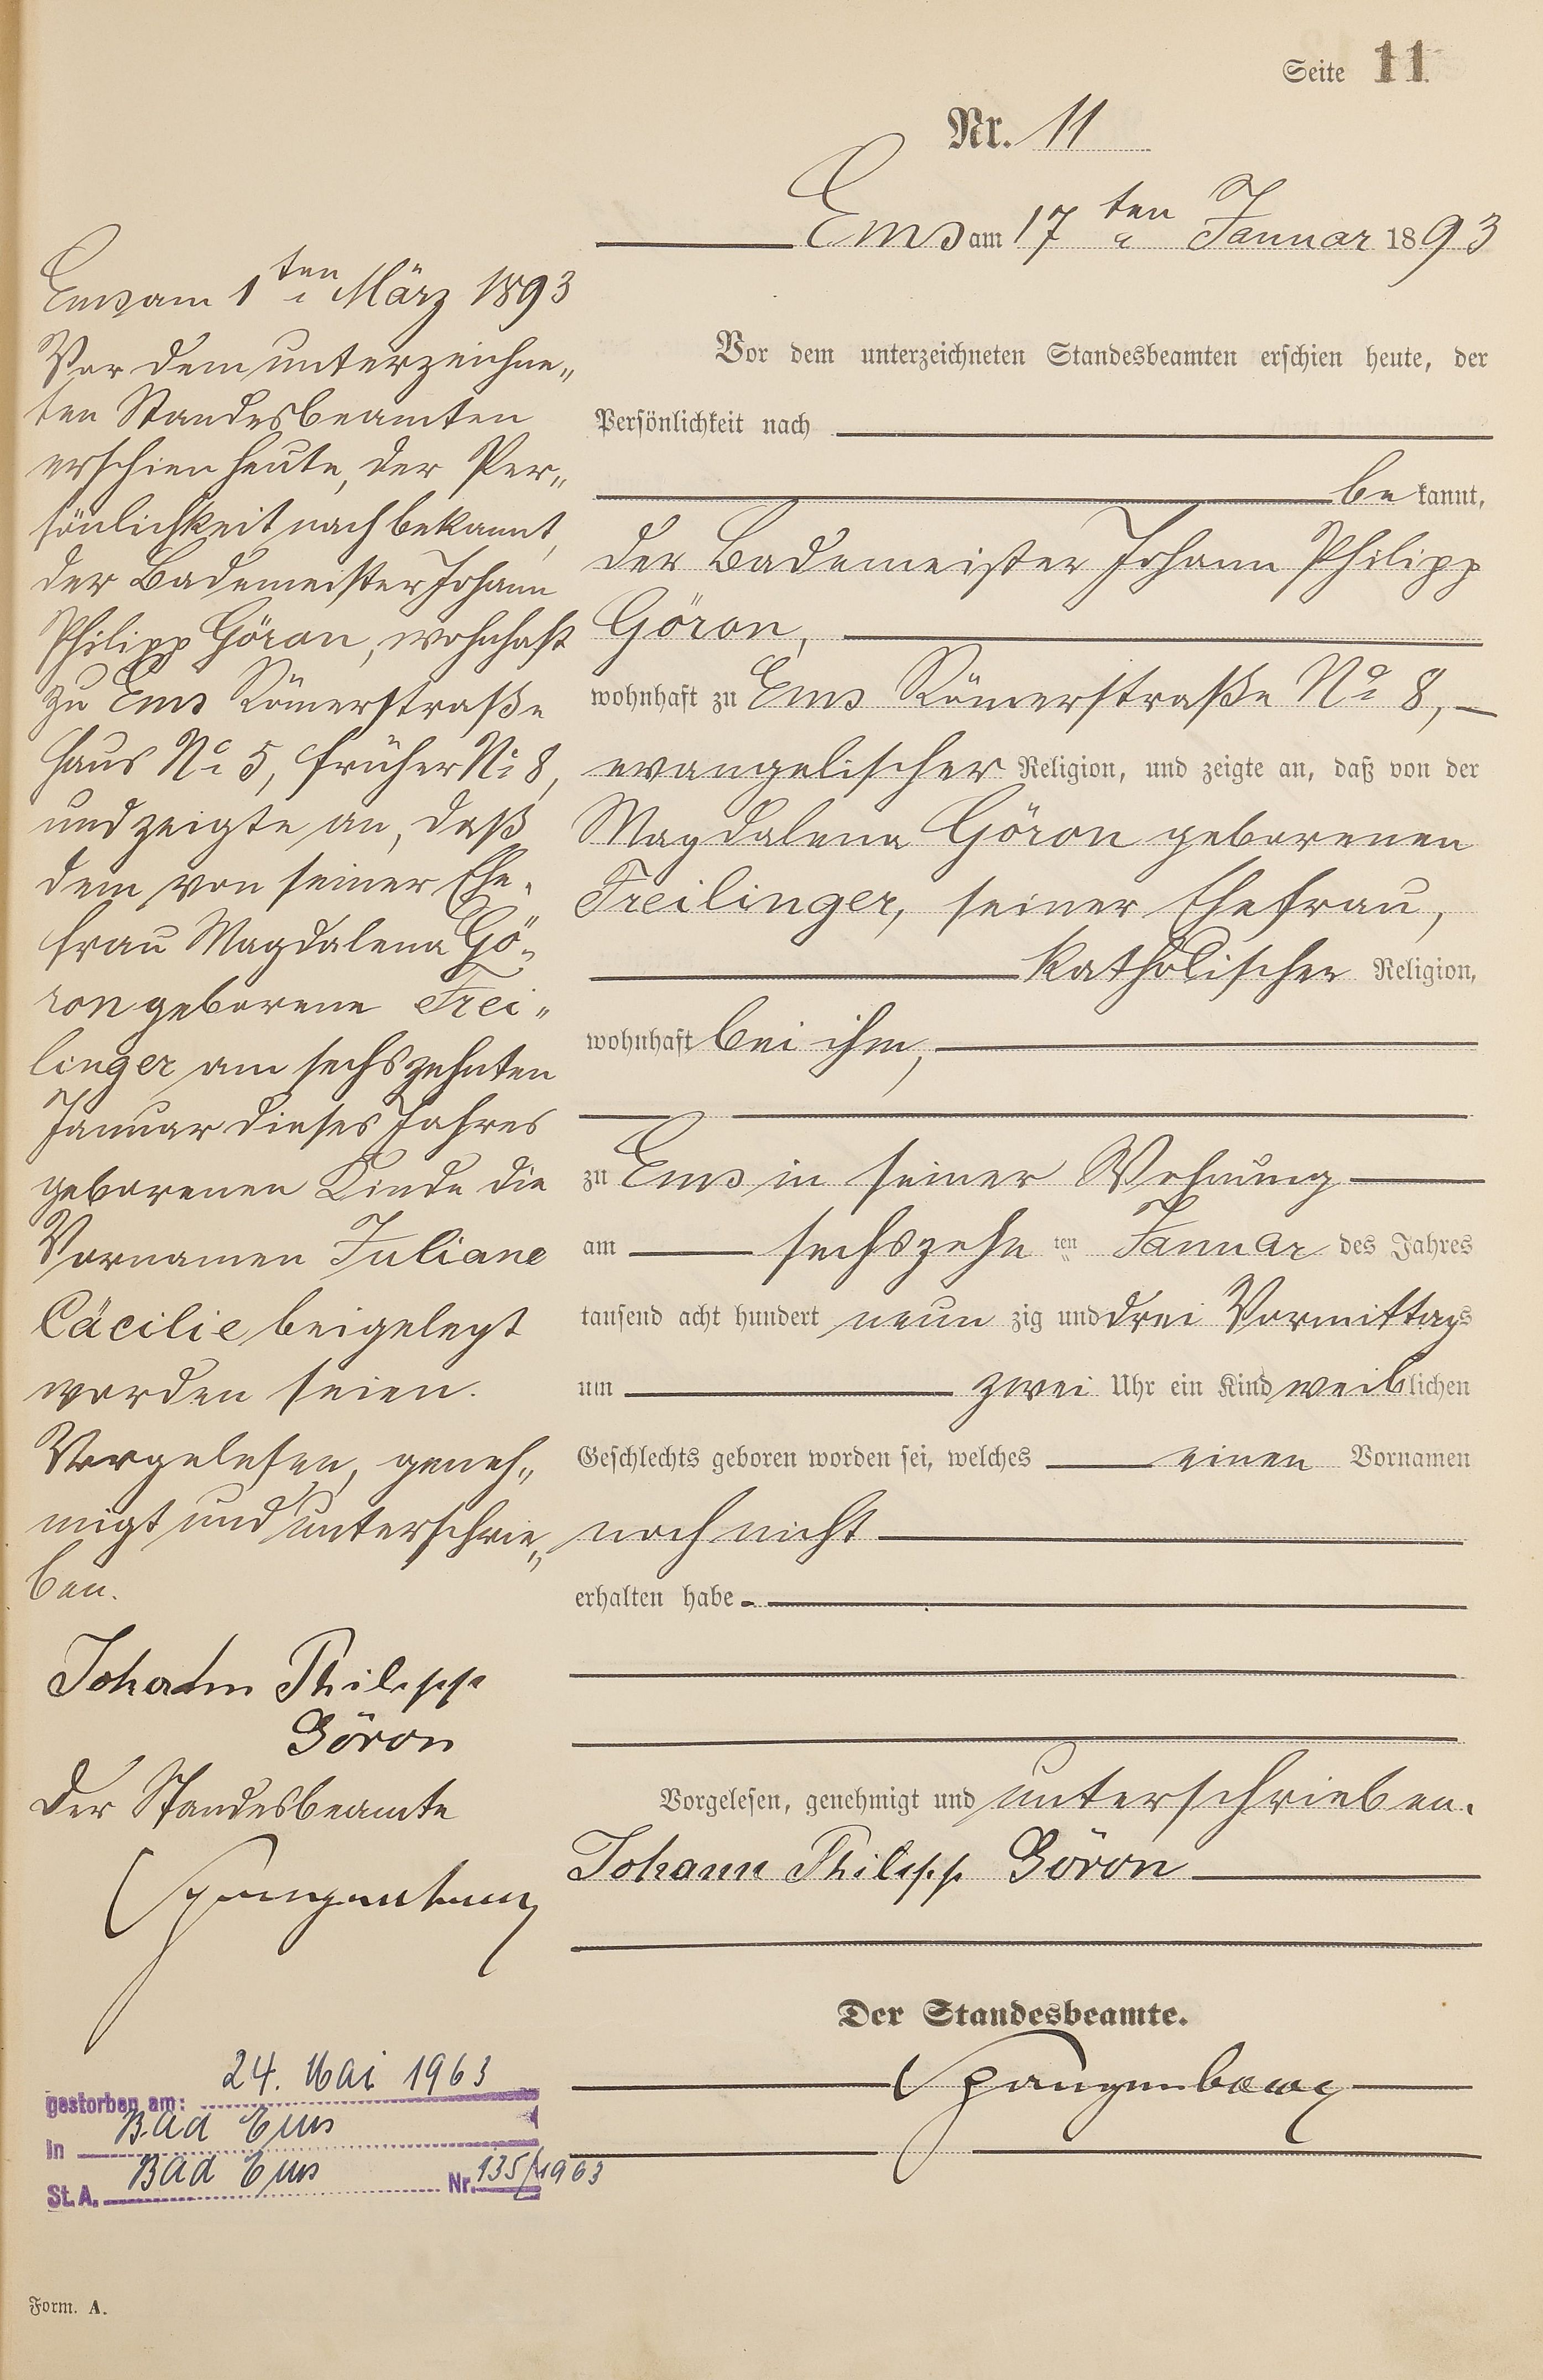 Seite 11
Nr. 11
Ems am 17ten Januar 1893
Vor dem unterzeichneten Standesbeamten erschien heute, der
Persönlichkeit nach
bekannt,
der Bademeister Johann Philipp
Göron,
wohnhaft zu Ems Römerstraße No 8,
evangelischer Religion, und zeigte an, daß von der
Magdalena Göron geborenen
Freilinger, seiner Ehefrau,
katholischer Religion,
wohnhaft bei ihm,
zu Ems in seiner Wohnung
am sechszehnten Januar des Jahres
tausend acht hundert neunzig und drei Vormittags
um zwei Uhr ein Kind weiblichen
Geschlechts geboren worden sei, welches einen Vornamen
noch nicht
erhalten habe.
Vorgelesen, genehmigt und unterschrieben.
Johann Philipp Göron
Der Standesbeamte.
Spangenberg
Ems am 1ten März 1893
Vor dem unterzeichne„
ten Standesbeamten
erschien heute, der Per„
sönlichkeit nach bekannt,
der Bademeister Johann
Philipp Göron, wohnhaft
zu Ems Römerstraße
Haus No 5, früher No 8,
und zeigte an, daß
dem von seiner Ehe„
frau Magdalena Gö„
ron geborene Frei„
linger am sechszehnten
Januar dieses Jahres
geborenen Kinde die
Vornamen Juliane
Cäcilie beigelegt
worden seien.
Vorgelesen, geneh„
migt und unterschrie„
ben.
Johann Philipp
Göron
Der Standesbeamte
Spangenberg
gestorben am: 24. Mai 1963
in Bad Ems
St. A. Bad Ems Nr. 135/1963
Form. A.